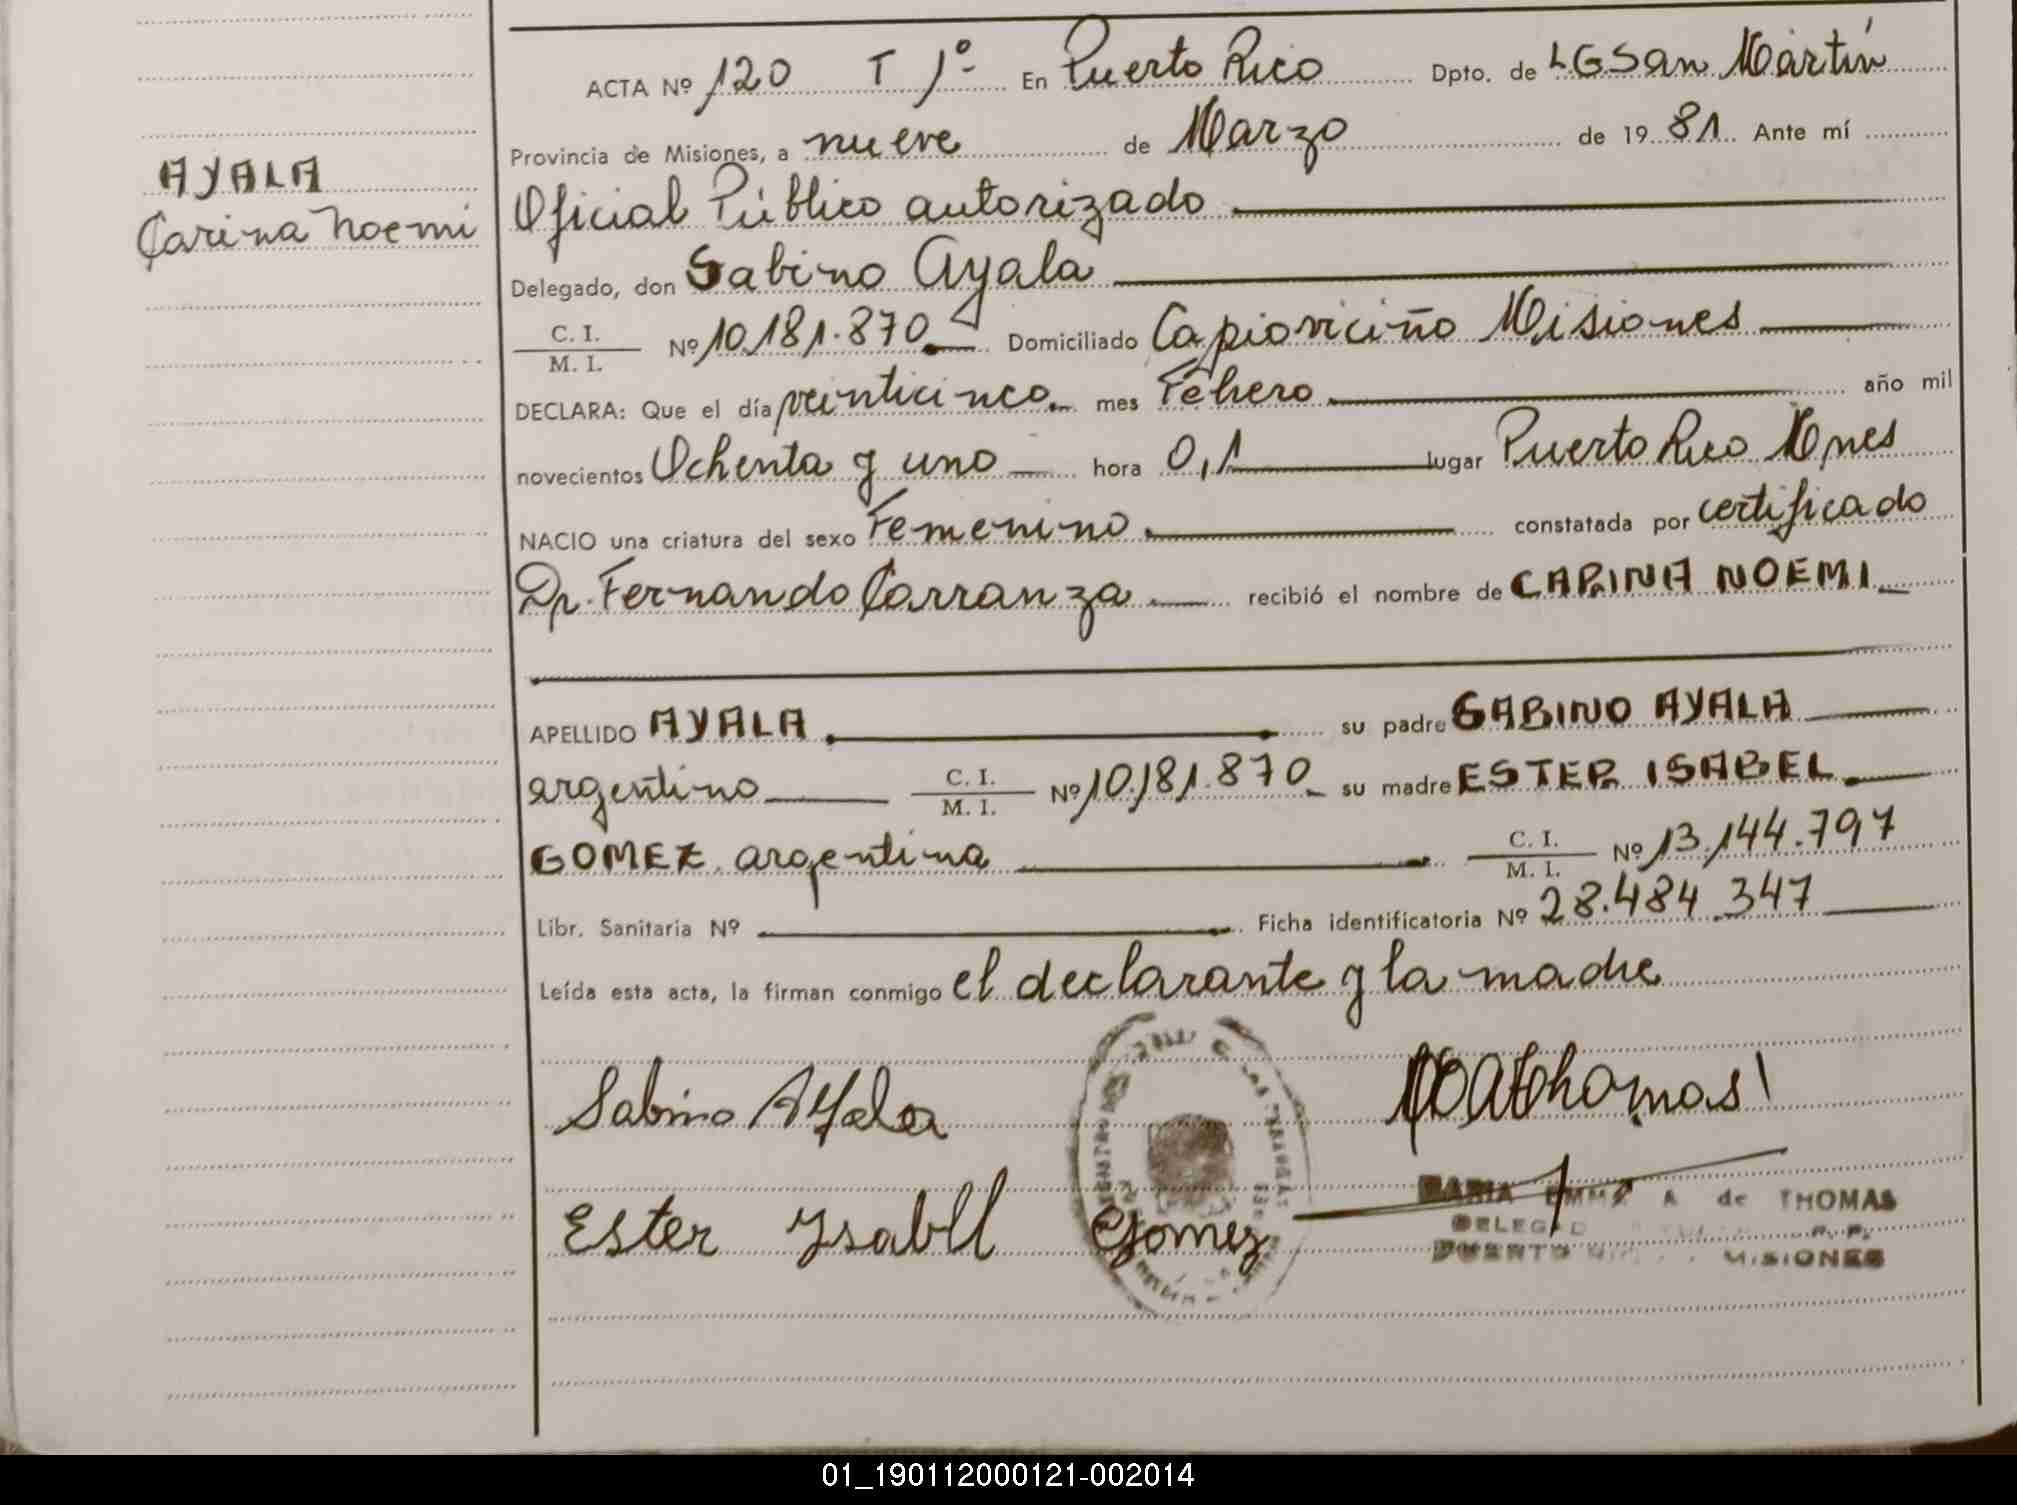 ACTA Nº 120 T 1º- En Puerto Rico Dpto. de L G San Martín
Provincia de Misiones, a nueve de Marzo de 19 81 Ante mí
AYALA
Carina Noemi
Oficial Público autorizado
Delegado, don Sabino Ayala
C. I.
M. I. Nº 10.181.870 Domiciliado Capioviciño Misiones
DECLARA: Que el día veinticinco mes Febrero año mil
novecientos Ochenta y uno hora 0,1 lugar Puerto Rico Mnes
NACIO una criatura del sexo Femenino constatada por certificado
Dr. Fernando Carranza recibió el nombre de CARINA NOEMI
APELLIDO AYALA su padre SABINO AYALA
argentino C. I.
M. I. Nº 10.181.870 su madre ESTER ISABEL
GOMEZ argentina C. I.
M. I. Nº 13.144.797
Libr. Sanitaria Nº Ficha identificatoria Nº 28.484.347
Leída esta acta, la firman conmigo el declarante y la madre
Sabino Ayala
Ester Ysabel Gomez
MARIA EMMA A de THOMAS
PUERTO MISIONES
01_190112000121-002014